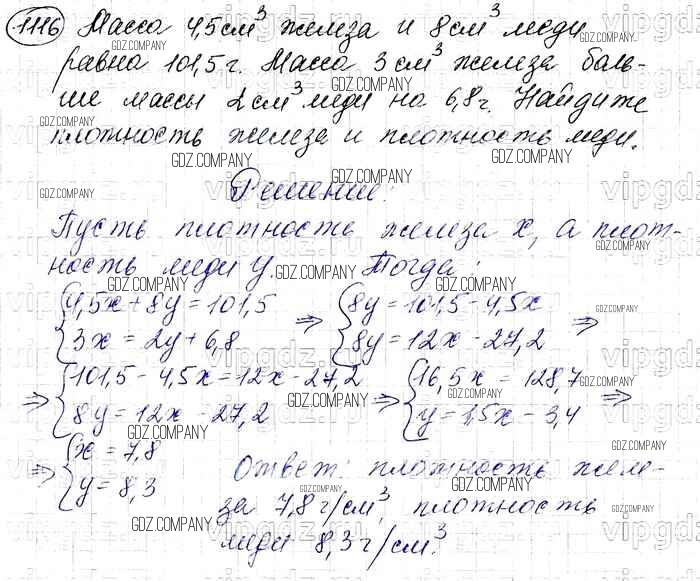 1116 Масса 4,5 см³ железа и 8 см³ меди
равна 101,5 г. Масса 3 см³ железа боль-
ше массы 2 см³ меди на 6,8 г. Найдите
плотность железа и плотность меди.
Решение:
Пусть плотность железа x, а плот-
ность меди y. Тогда:
{4,5x + 8y = 101,5 ⇒ {8y = 101,5 - 4,5x ⇒
{3x = 2y + 6,8 {8y = 12x - 27,2
⇒ {101,5 - 4,5x = 12x - 27,2 ⇒ {16,5x = 128,7 ⇒
{8y = 12x - 27,2 {y = 1,5x - 3,4
⇒ {x = 7,8 Ответ: плотность желе-
{y = 8,3 за 7,8 г/см³, плотность
меди 8,3 г/см³.
GDZ.COMPANY
vipgdz.ru